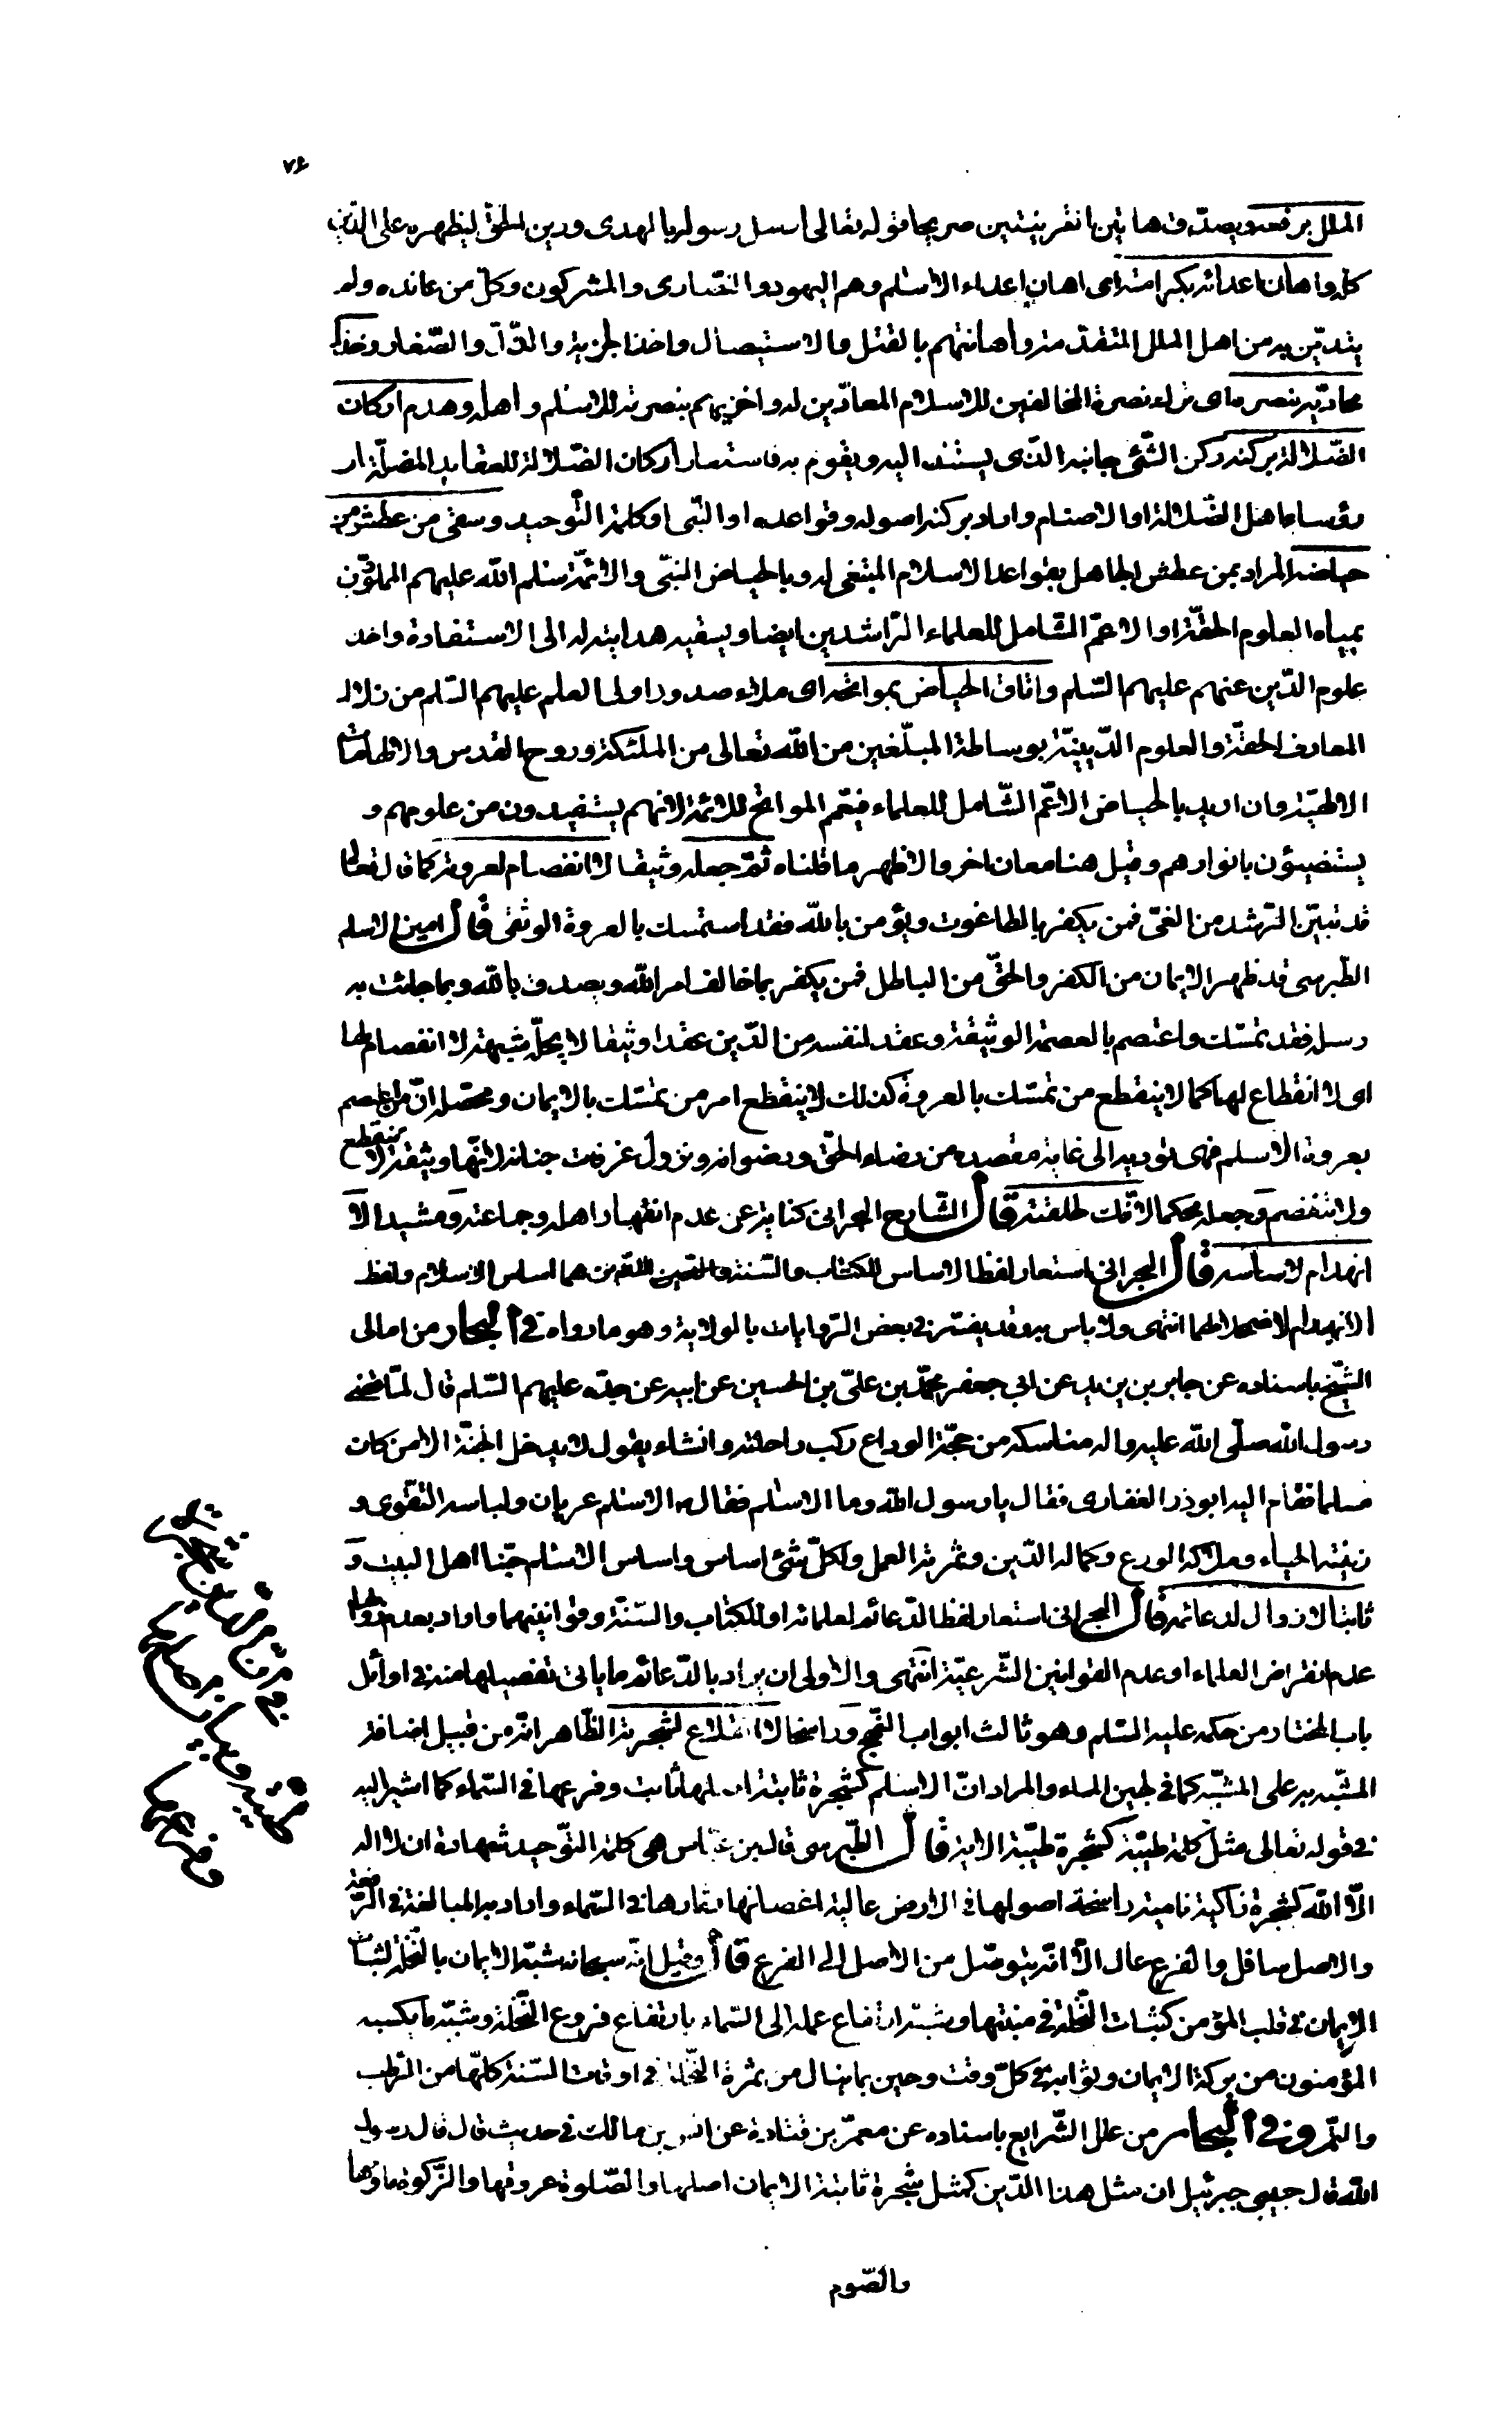 ٧٤
الملل برفعه ويصدّق هاتين القرينتين صريحا قوله تعالى ارسل رسوله بالهدى ودين الحقّ ليظهره على الدّين
كلّه واهان اعدائه بكرامته اى اهان اعداء الاسلم وهم اليهود والنصّارى والمشركون وكلّ من عانده ولم
يتديّن به من اهل الملل المتقدّمة واهانتهم بالقتل والاستيصال واخذ الجزية والذّلّ والصّغار وخذل
محادّيه بنصره اى ترك نصرة المخالفين للاسلام المعادّين له واخزيهم بنصرته للاسلم واهله وهدم اركان
الضّلالة بركنه ركن الشّئ جانبه الذّى يستند اليه ويقوم به فاستعار اركان الضّلالة للعقايد المضلّة او
رؤساء اهل الضّلالة او الاصنام واراد بركنه اصوله وقواعده او النّبى او كلمة التّوحيد وسقى من عطش من
حياضه المراد بمن عطش الجاهل بقواعد الاسلام المبتغى له وبالحياض النبّى والائمّة سلم الله عليهم المملوّون
بمياه العلوم الحقّة او الاعمّ الشّامل للعلماء الرّاشدين ايضا وبسقيه هدايته له الى الاستفادة واخذ
علوم الدّين عنهم عليهم السّلم واتاق الحياض بمواتحه اى ملاء صدور اولى العلم عليهم السّلم من زلال
المعارف الحقّة والعلوم الدّينيّة بوساطة المبلّغين من الله تعالى من الملئكة وروح القدس والالهامات
الالهيّة وان اريد بالحياض الاعّم الشّامل للعلماء فيعّم المواتح للائمّة لانهم يستفيدون من علومهم و
يستضيئون بانوارهم وقيل هنا معان اخر والاظهر ما قلناه ثمّ جعله وثيقا لا انفصام لعروته كما قال تعالى
قد تبيّن الرّشد من الغىّ فمن يكفر بالطاغوت ويؤمن بالله فقد استمسك بالعروة الوثقى قال امين الاسلم
الطّبرسى قد ظهر الايمان من الكفر والحقّ من الباطل فمن يكفر بما خالف امر الله ويصدق بالله وبما جائت به
رسله فقد تمسّك واعتصم بالعصمة الوثيقة وعقد لنفسه من الدّين عقدا وثيقا لا يحلّه شبهة لا انفصام لها
اى لا انقطاع لها كما لا ينقطع من تمسّك بالعروة كذلك لا ينقطع امر من تمسّك بالايمان ومحصّله انّ من اعتصم
بعروة الاسلم فهى تؤديه الى غاية مقصده من رضاء الحقّ ورضوانه ونزول غرفات جنانه لانّها وثيقة لا تنقطع
ولا تنفصم وجعله محكما لا فكّ لحلقته قال الشّارح البحرانى كناية عن عدم انقهار اهله وجماعته ومشيدا لا
انهدام لاساسه قال البحرانى استعار لفظ الاساس للكتاب والسّنة الذين هما اساس الاسلام ولفظ
الانهدام لاضمحلالهما انتهى ولا باس به وقد يفسّر فى بعض الرّوايات بالولاية وهو ما رواه فى البحار من امالى
الشّيخ باسناده عن جابر بن يزيد عن ابى جعفر محمّد بن علىّ بن الحسين عن ابيه عن جدّه عليهم السّلم قال لمّا قضى
رسول الله صلّى الله عليه واله مناسكه من حجّة الوداع ركب راحلته وانشاء يقول لا يدخل الجنّة الا من كان
مسلما فقام اليه ابو ذر الغفارى فقال يا رسول الله وما الاسلم فقال ص الاسلم عريان ولباسه التقوى و
زينته الحياء وملاكه الورع وكماله الدّين وثمرته العمل ولكلّ شئ اساس واساس الاسلم حبّنا اهل البيت و
ثابتا لا زوال لدعائمه قال البحرانى استعار لفظ الدّعائم لعلمائه او للكتاب والسّنّة وقوانينهما واراد بعدم زوالها
عدم انقراض العلماء او عدم القوانين الشّرعيّة انتهى والاولى ان يراد بالدّعائم ما ياتى تفصيلها منه فى اوائل
باب المختار من حكمه عليه السّلم وهو ثالث ابواب النّهج وراسخا لا انقلاع لشجرته الظّاهر انّه من قبيل اضافة
المشبّه به على المشبّه كما فى لجين الماء والمراد انّ الاسلم كشجرة ثابتة اصلها ثابت وفرعها فى السّماء كما اشير اليه
فى قوله تعالى مثل كلمة طيّبة كشجرة طيّبة الاية قال الطّبرسى قال ابن عبّاس هى كلمة التّوحيد شهادة ان لا اله
الّا الله كشجرة زاكية نامية راسخة اصولها فى الارض عالية اغصانها وثمارها فى السّماء واراد به المبالغة فى الرّفعة
والاصل سافل والفرع عال الّا انّه يتوصّل من الاصل الى الفرع قال وقيل انّه سبحانه شبّه الايمان بالنّخلة لثبات
الايمان فى قلب المؤمن كثبات النّخلة فى منبتها وشبّه ارتفاع عمله الى السّماء بارتفاع فروع النّخلة وشبّه ما يكسبه
المؤمنون من بركة الايمان وثوابه فى كلّ وقت وحين بما ينال من ثمرة النّخلة فى اوقات السّنة كلّها من الرّطب
والتّمر وفى البحار من علل الشّرايع باسناده عن معمّر بن قتادة عن انس بن مالك فى حديث قال قال رسول
الله قال حبيبى جبرئيل ان مثل هذا الدّين كمثل شجرة ثابتة الايمان اصلها والصّلوة عروقها والزّكوة ماؤها
والصّوم